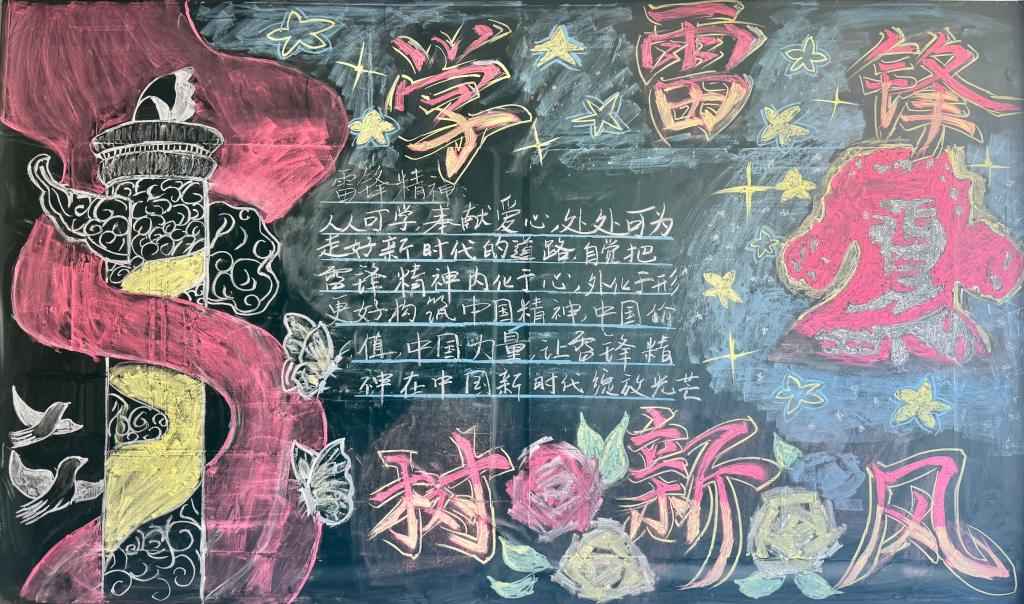 学雷锋
雷锋精神、
人人可学,奉献爱心,处处可为
走好新时代的道路,自觉把
雷锋精神内化于心,外化于形
更好构筑中国精神,中国价
值,中国力量,让雷锋精
神在中国新时代绽放光芒
树新风